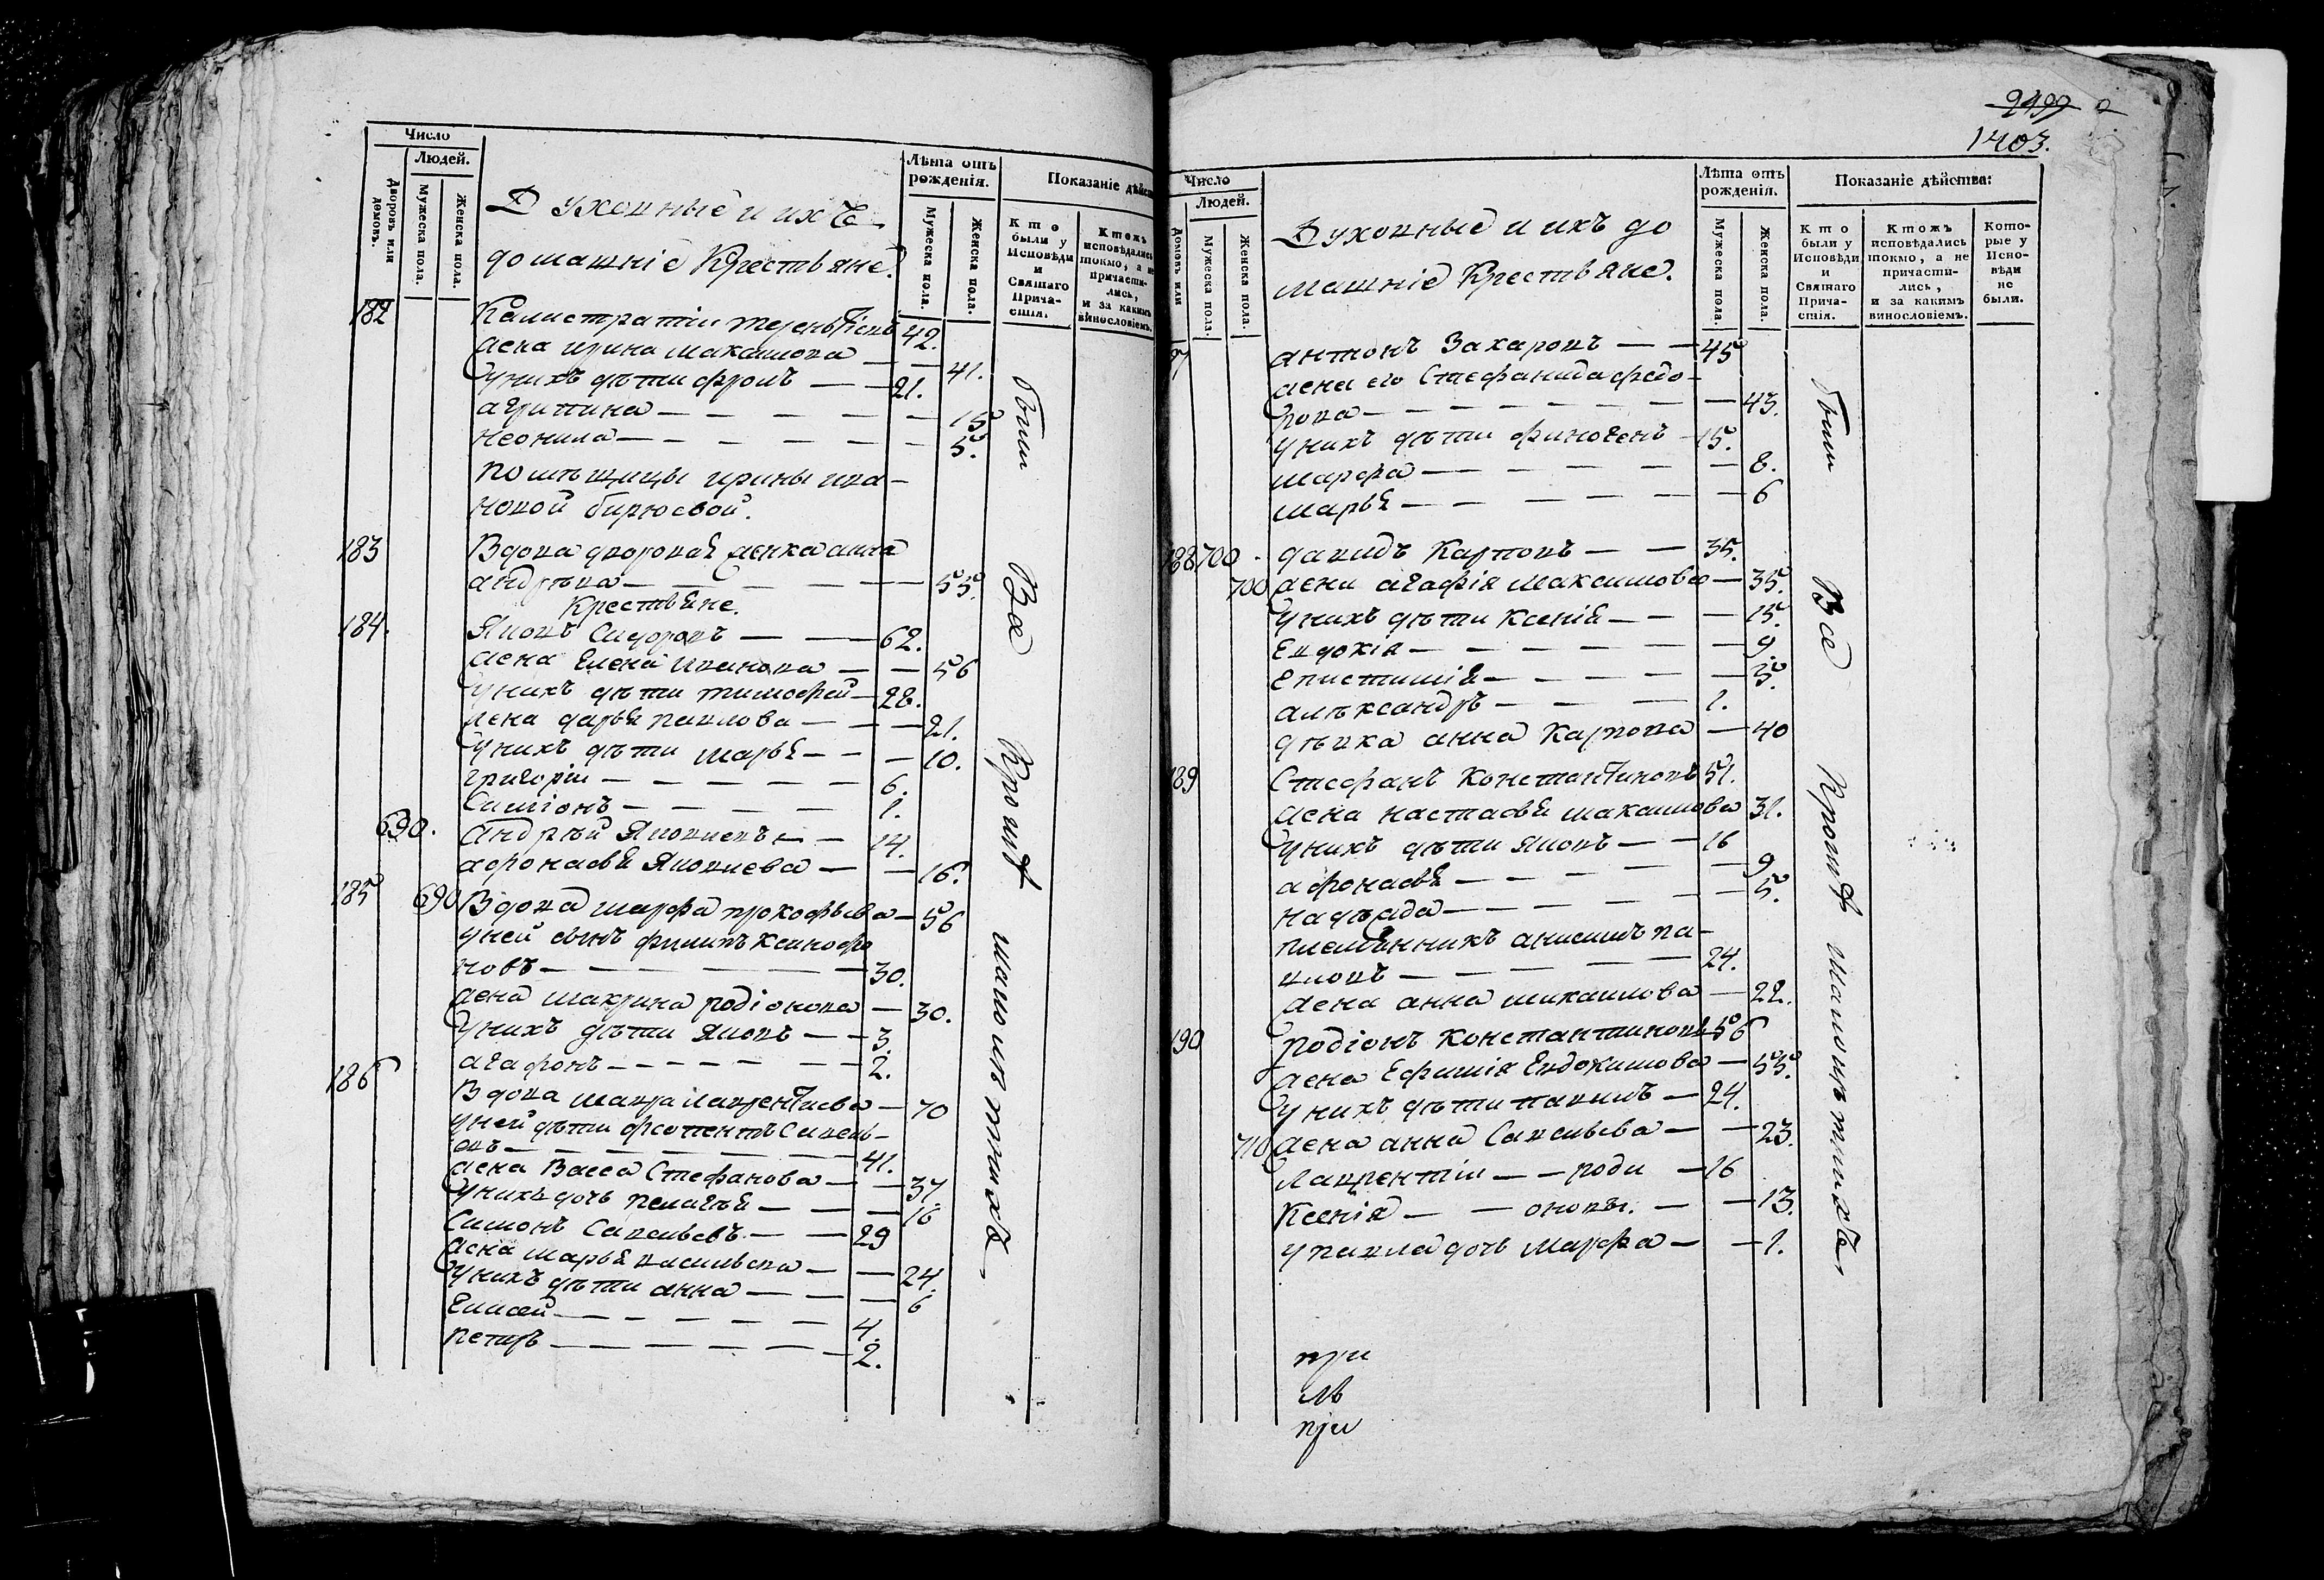 Число
Людей.
Дворовъ или домовъ.
Мужеска пола.
Женска пола.
Духовныe и ихъ
домашніе Крестьяне.
Лѣта отъ рожденія.
Мужеска пола.
Женска пола.
Показаніе дѣйств
Кто были у Исповѣди и Святаго Прича-стія.
Ктожъ исповѣдались токмо, а не причасти-лись, и за какимъ винословіемъ.
182 Калистратіи терентіевъ 42.
жена ирина максимова — — 41.
у нихъ дѣти фролъ — — 21.
агрипина — — — — — 15
неонила — — — — — — 5.
помѣщицы ирины ива-
новой бирюевой.
183 Вдова дворовая женка анна
андрѣева — — — — — 55.
Крестьяне.
184. Яковъ Сидоровъ — — — 62.
жена Елена иванова — — 56
у нихъ дѣти тимофей — 28.
жена дарья павлова — — — 21.
у нихъ дѣти марья — — — 10.
григоріи — — — — — 6.
Симіонъ — — — — 1.
690. Андрѣй Яковлевъ — — 14.
афонасья Яковлева — — 16.
185 690 Вдова марфа прокофьева — 56
у ней сынъ филипъ ксинофо
новъ — — — — — — 30.
жена макрина родіонова — 30.
у нихъ дѣти Яковъ — — 3.
агафонъ — — — — — — — 2.
186 Вдова мавра лаврентіева — 70
у ней дѣти феопентъ Савель-
евъ — — — — — — — 41.
жена Васса Стефанова — — 37
у нихъ дочь пелагѣя — — — 16
Симонъ Савельевъ — — 29
жена марья васильева — — 24.
у нихъ дѣти анна — — — 6
Елисей — — — — — — 4.
петръ — — — — — — — 2.
были Всѣ Кромѣ малолѣтнихъ
2499
1403.
Число
Людей.
домовъ или
Мужеска пола.
Женска пола.
Духовныe и ихъ до
машніе Крестьяне.
Лѣта отъ рожденія.
Мужеска пола.
Женска пола.
Показаніе дѣйства:
Кто были у Исповѣди и Святаго Прича-стія.
Ктожъ исповѣдались токмо, а не причасти-лись, и за какимъ винословіемъ.
Кото-рые у Испо-вѣди не были.
87 антонъ Захаровъ — — 45
жена его Стефанида федо-
рова — — — — — — — — 43.
у нихъ дѣти финогенъ — 15.
марфа — — — — — — 8.
марья — — — — — — 6
188 700. давидъ Карповъ — — 35.
700 жена агафія максимова — 35.
у нихъ дѣти Ксенія — — — 15.
Евдокія — — — — — — 9.
Епистимія — — — — — 5.
алѣксандръ — — — — 1.
дѣвка анна Карпова — 40
189 Стефанъ Константиновъ 51.
жена настасья максимова 31.
у нихъ дѣти Яковъ — — 16
афонасья — — — — — 9
надѣжда — — — — — — 5.
племянникъ анисимъ па-
вловъ — — — — — 24.
жена анна михаилова — 22.
190 родіонъ Константиновъ 56
жена Ефимія Евдокимова — 55.
у нихъ дѣти павилъ — 24.
710 жена анна Савельева — — 23.
Лаврентіи — — роди — 16
Ксенія — — оновы. — — 13.
у павла дочь марфа — — 1.
были Всѣ Кромѣ малолѣтнихъ
при
ль
при